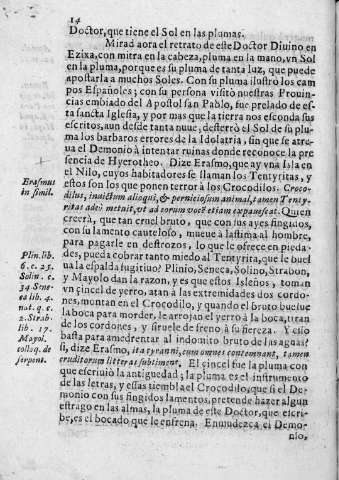 14
Doctor, que tiene el Sol en las plumas.
Mirad aora el retrato de este Doctor Diuino en
Ezixa, con mitra en la cabeza, pluma en la mano, vn Sol
en la pluma, porque es su pluma de tanta luz, que puede
apostarla a muchos Soles. Con su pluma ilustrò los cam
pos Españoles; con su persona visitò nuestras Prouin
cias embiado del Apostol san Pablo, fue prelado de es-
ta sancta Iglesia, y por mas que la tierra nos esconda sus
escritos, aun desde tanta nuue, desterrò el Sol de su plu
ma los barbaros errores de la Idolatria, sin que se atre-
ua el Demonio à intentar ruinas donde reconoce la pre
sencia de Hyerotheo. Dize Erasmo, que ay vna Isla en
el Nilo, cuyos habitadores se llaman los Tentyritas, y
estos son los que ponen terror à los Crocodilos. Croco-
dilus, inuictum alioqui, & perniciosum animal, tamen Tenty-
ritas adeò metuit, vt ad eorum vocẽ etiam expauescat. Quien
creerà, que tan cruel bruto, que con sus ayes fingidos,
con su lamento cauteloso, mueue à lastima al hombre,
para pagarle en destrozos, lo que le ofrece en pieda-
des, pueda cobrar tanto miedo al Tentyrita, que le buel
ua la espalda fugitiuo? Plinio, Seneca, Solino, Strabon,
y Mayolo dan la razon, y es que estos Isleños, toman
vn çincel de yerro, atan a las extremidades dos cordo-
nes, montan en el Crocodilo, y quando el bruto buelue
la boca para morder, le arrojan el yerro à la boca, tiran
de los cordones, y sìruele de freno à su fiereza. Y esto
basta para amedrentar al indomito bruto de las aguas?
si, dize Erasmo, ita tyranni, cum omnes contemnant, tamen
eruditorum litteras subtiment. El çincel fue la pluma con
que escriuiò la antiguedad; la pluma es el instrumento
de las letras, y essas tiembla el Crocodilo, que si el De-
monio con sus fingidos lamentos, pretende hazer algun
estrago en las almas, la pluma de este Doctor, que escri-
be, es el bocado que le enfrena. Enmudezca el Demo-
nio,
Erasmus
in simil.
Plin. lib.
6. c. 25.
Solin. c.
34. Sene-
ca lib. 4.
nat. q. c.
2. Strab.
lib. 17.
Mayol.
colloq. de
serpent.